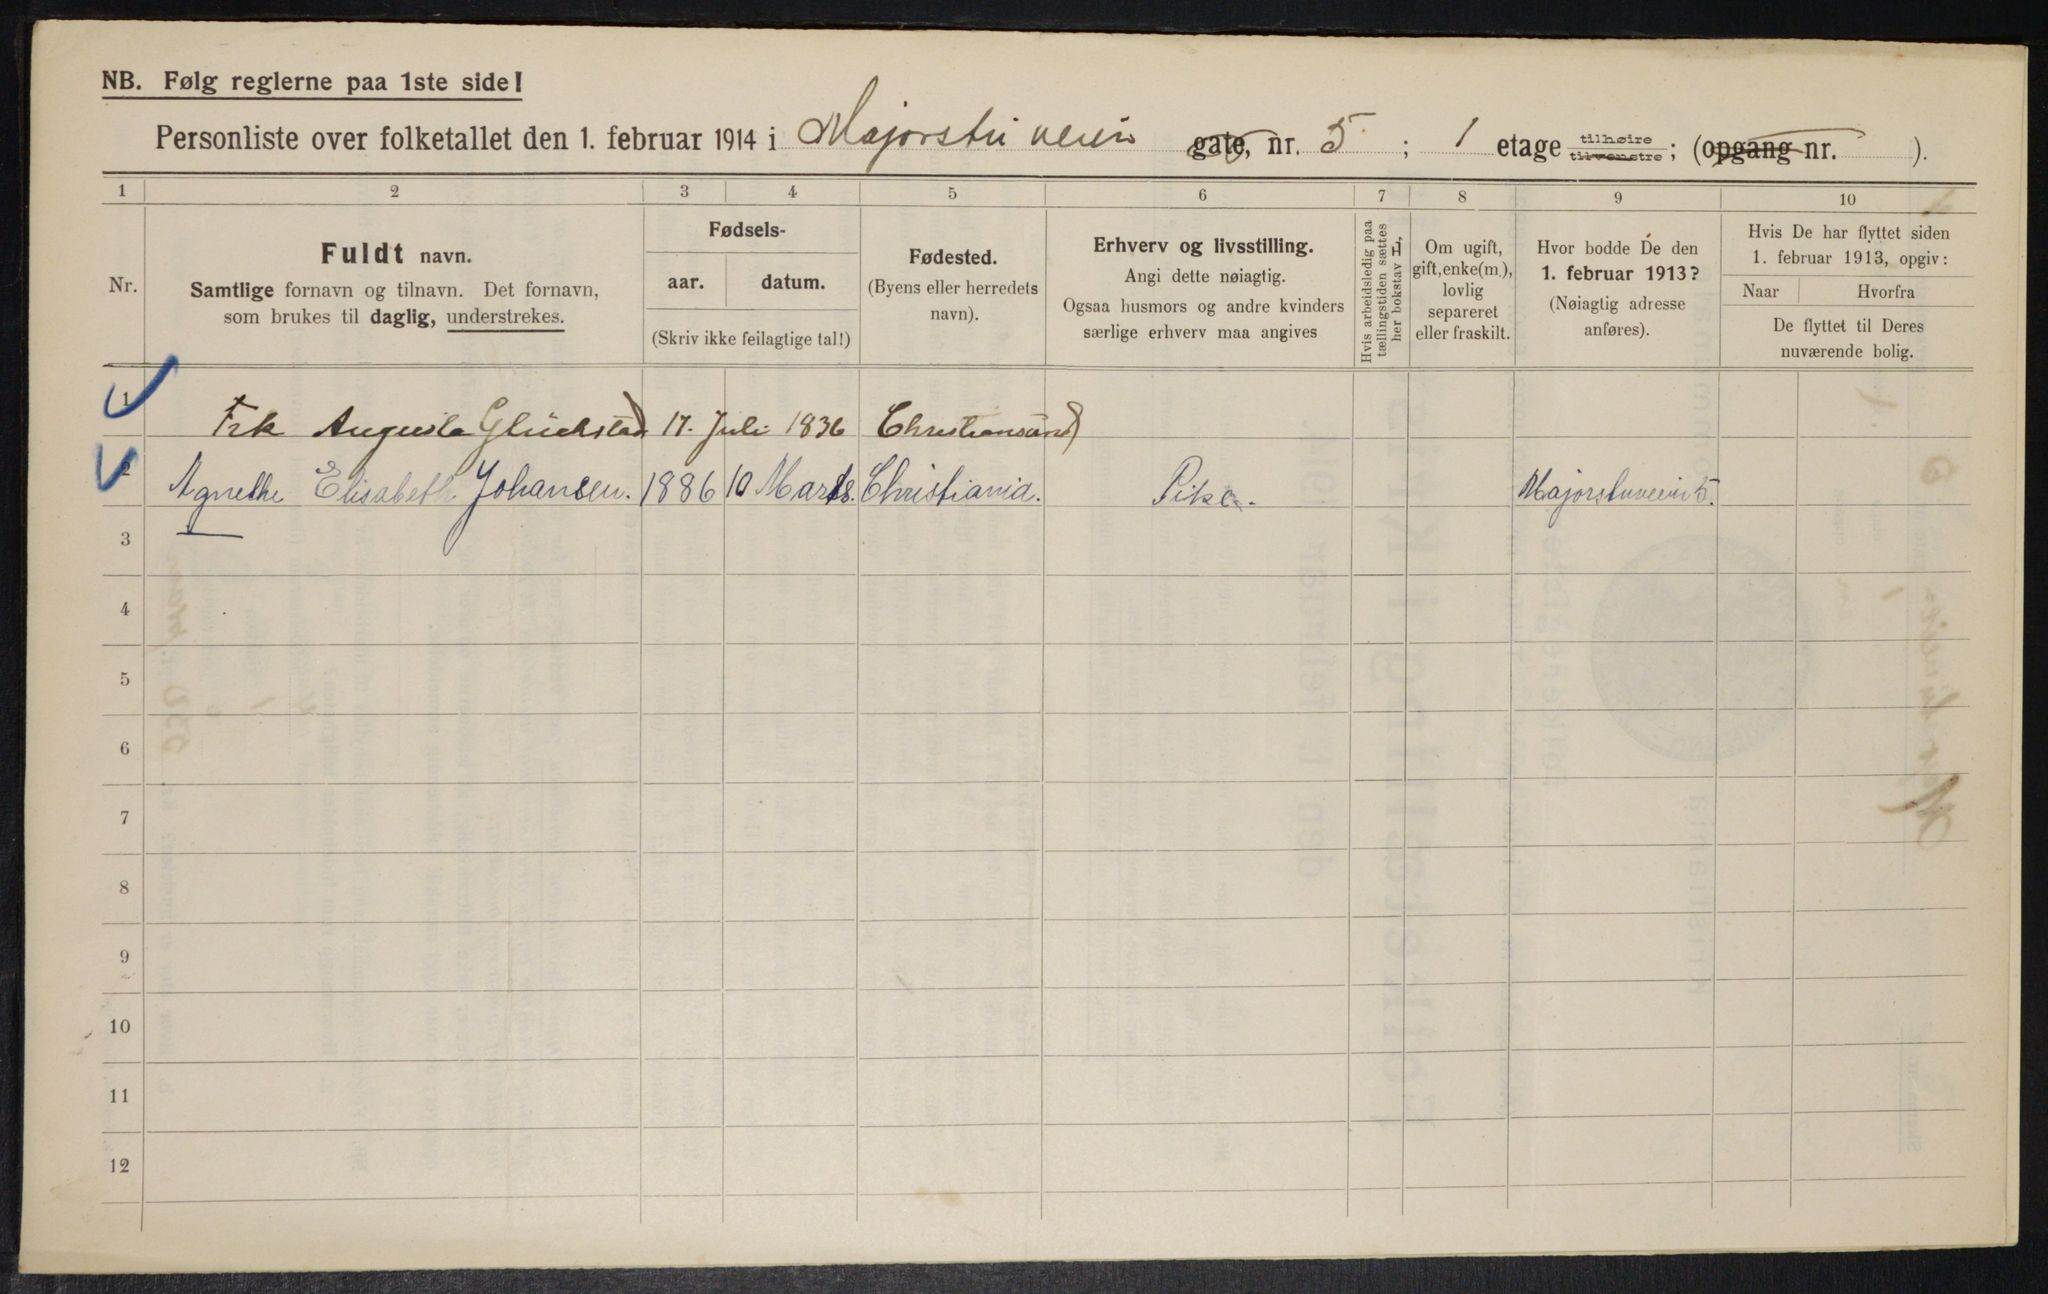 NB. Følg reglerne paa 1ste side!
Personliste over folketallet den 1. februar 1914 i Majorstuveien gate, nr. 5 ; 1 etage tilhøire tilvenstre; (opgang nr. ).
1 2 3 4 5 6 7 8 9 10
Nr.
Fuldt navn.
Samtlige fornavn og tilnavn. Det fornavn,
som brukes til daglig, understrekes.
Fødsels-
aar. datum.
(Skriv ikke feilagtige tal!)
Fødested.
(Byens eller herredets
navn).
Erhverv og livsstilling.
Angi dette nøiagtig.
Ogsaa husmors og andre kvinders
særlige erhverv maa angives
Hvis arbeidsledig paa
tællingstiden sættes
her bokstav L.
Om ugift,
gift, enke(m.),
lovlig
separeret
eller fraskilt.
Hvor bodde De den
1. februar 1913?
(Nøiagtig adresse
anføres).
Hvis De har flyttet siden
1. februar 1913, opgiv:
Naar Hvorfra
De flyttet til Deres
nuværende bolig.
1 Frk Augusta Glückstad 17. Juli 1836 Christiansund
2 Agnethe Elisabeth Johansen. 1886 10 Marts. Christiania. Pike. Majorstuveien 5.
3
4
5
6
7
8
9
10
11
12